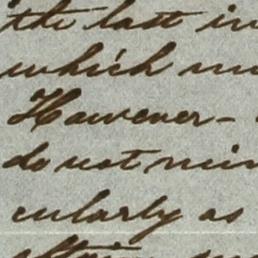 the last in
which
However -
do not
cularly as